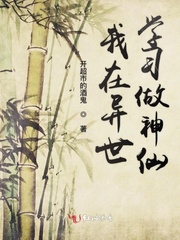 学习做神仙
我在异世
开超市的酒鬼 ◎ 著